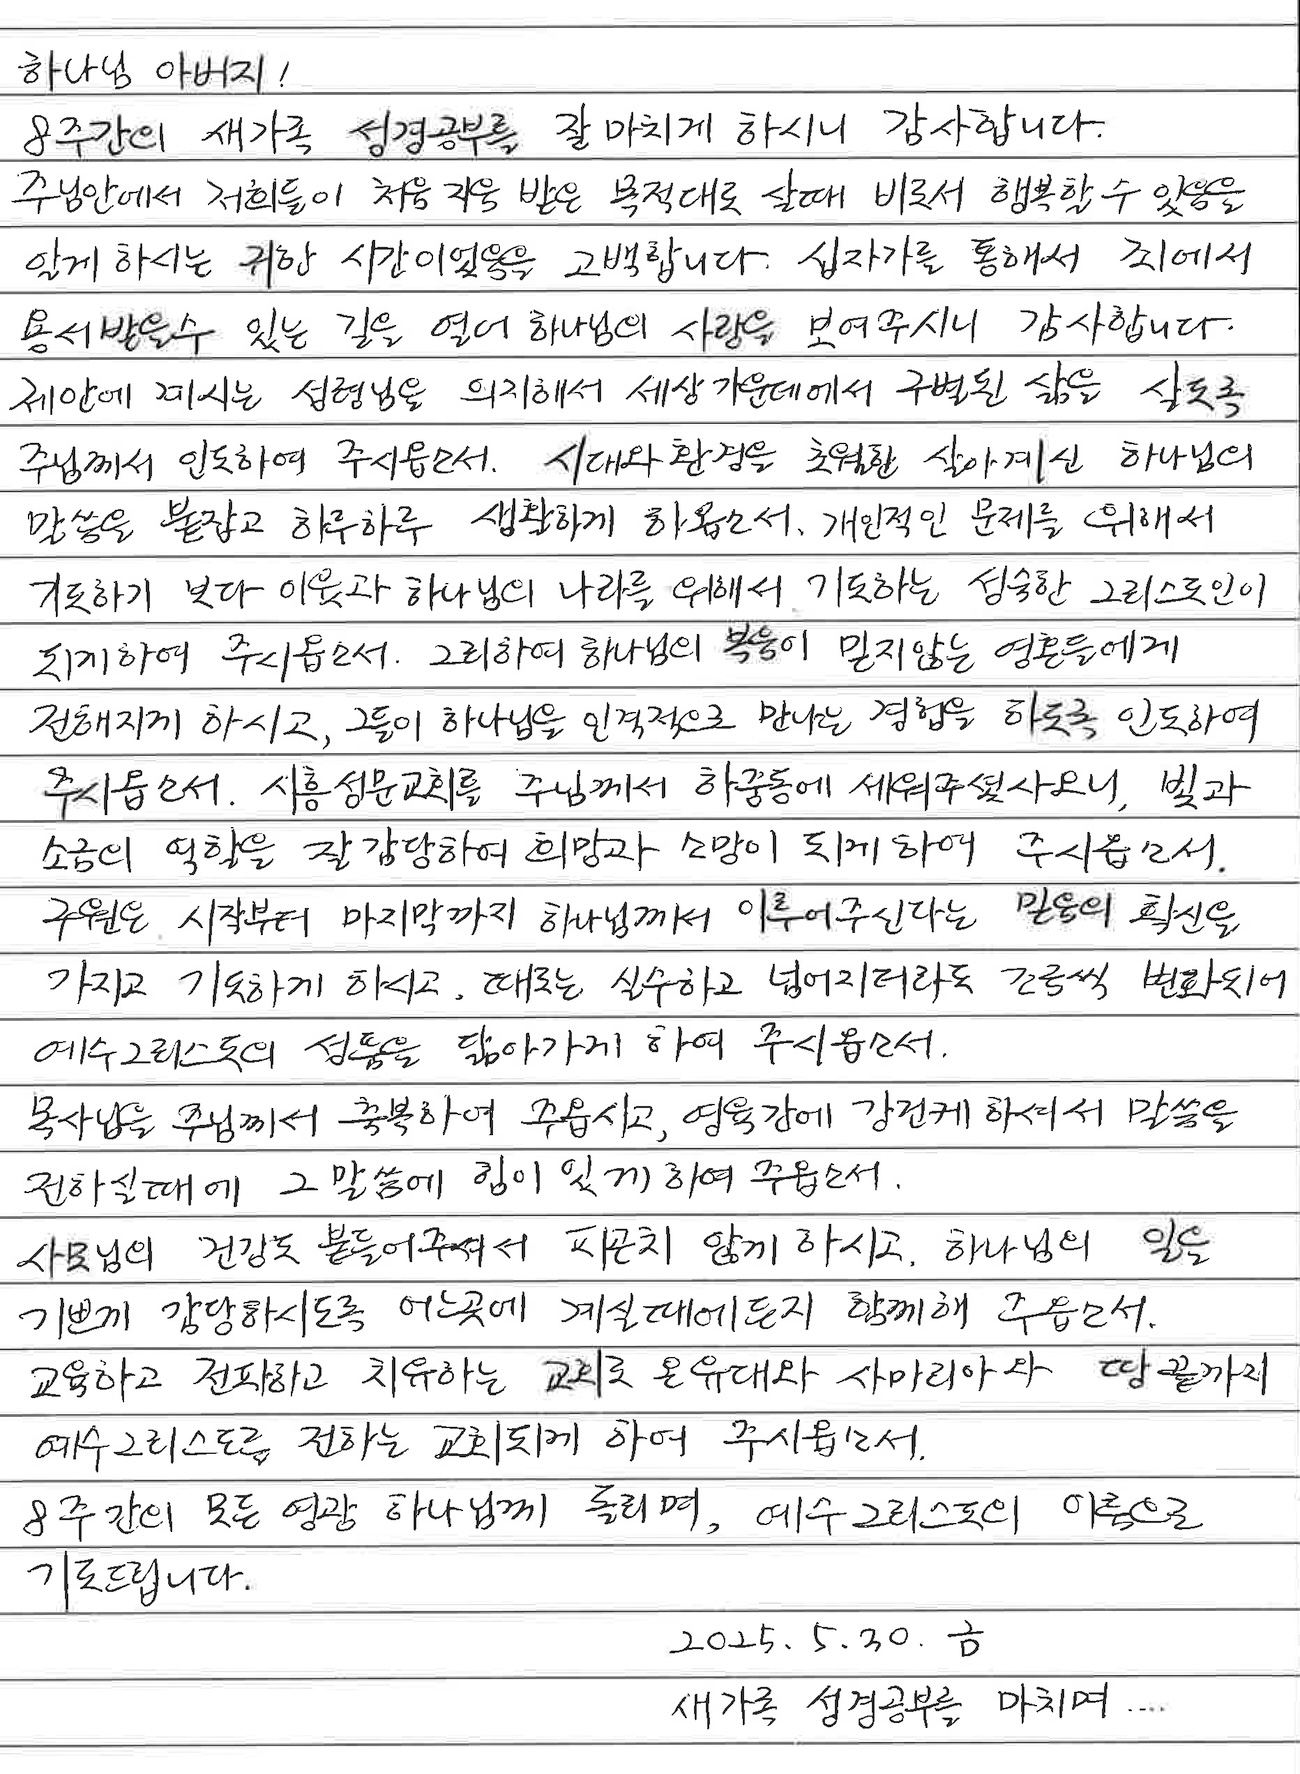 하나님 아버지!
8주간의 새가족 성경공부를 잘 마치게 하시니 감사합니다.
주님안에서 저희들이 처음 지음 받은 목적대로 살때 비로서 행복할 수 있음을
알게 하시는 귀한 시간이었음을 고백합니다. 십자가를 통해서 죄에서
용서받을수 있는 길을 열어 하나님의 사랑을 보여주시니 감사합니다.
제안에 계시는 성령님을 의지해서 세상가운데에서 구별된 삶을 살도록
주님께서 인도하여 주시옵소서. 시대와 환경을 초월한 살아계신 하나님의
말씀을 붙잡고 하루하루 생활하게 하옵소서. 개인적인 문제를 위해서
기도하기 보다 이웃과 하나님의 나라를 위해서 기도하는 성숙한 그리스도인이
되게하여 주시옵소서. 그리하여 하나님의 복음이 믿지않는 영혼들에게
전해지게 하시고, 그들이 하나님을 인격적으로 만나는 경험을 하도록 인도하여
주시옵소서. 시흥성문교회를 주님께서 하중동에 세워주셨사오니, 빛과
소금의 역할을 잘 감당하여 희망과 소망이 되게 하여 주시옵소서.
구원은 시작부터 마지막까지 하나님께서 이루어주신다는 믿음의 확신을
가지고 기도하게 하시고, 때로는 실수하고 넘어지더라도 조금씩 변화되어
예수그리스도의 성품을 닮아가게 하여 주시옵소서.
목사님을 주님께서 축복하여 주옵시고, 영육간에 강건케 하셔서 말씀을
전하실때에 그 말씀에 힘이 있게 하여 주옵소서.
사모님의 건강도 붙들어주셔서 피곤치 않게 하시고, 하나님의 일을
기쁘게 감당하시도록 어느곳에 계실때에든지 함께해 주옵소서.
교육하고 전파하고 치유하는 교회로 온유대와 사마리아와 땅끝까지
예수그리스도를 전하는 교회되게 하여 주시옵소서.
8주간의 모든 영광 하나님께 돌리며, 예수그리스도의 이름으로
기도드립니다.
2025. 5. 30. 금
새가족 성경공부를 마치며 ....